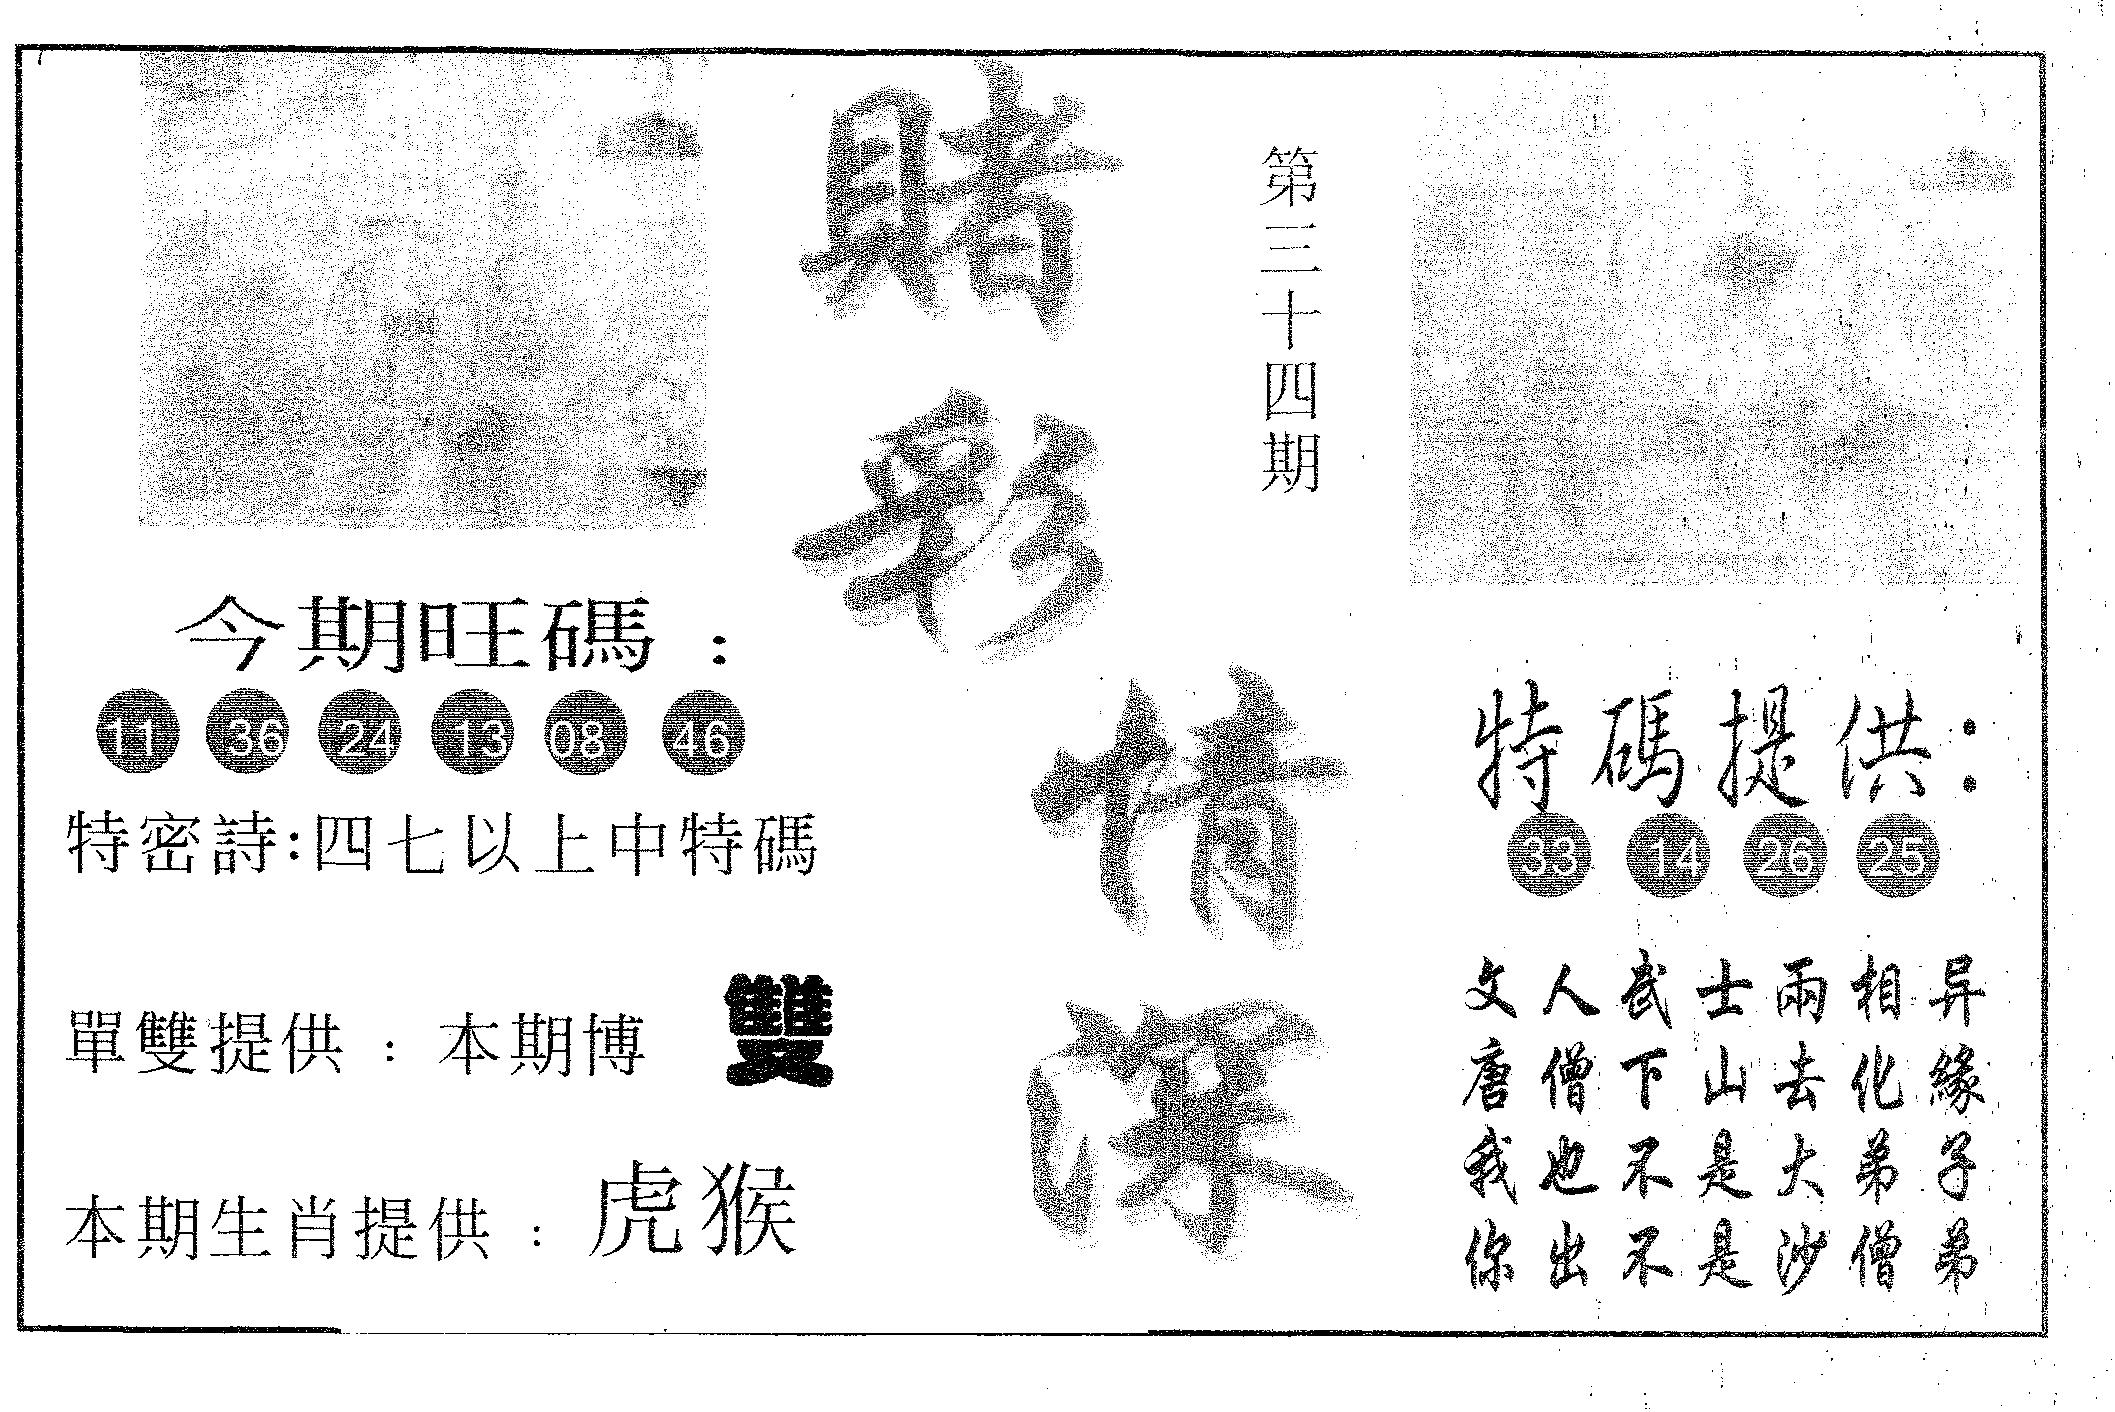 賭彩情深
第三十四期
今期旺碼：
11 36 24 13 08 46
特密詩:四七以上中特碼
單雙提供：本期博 雙
本期生肖提供：虎猴
特碼提供：
33 14 26 25
文人武士兩相异
唐僧下山去化緣
我也不是大弟子
你出不是沙僧弟